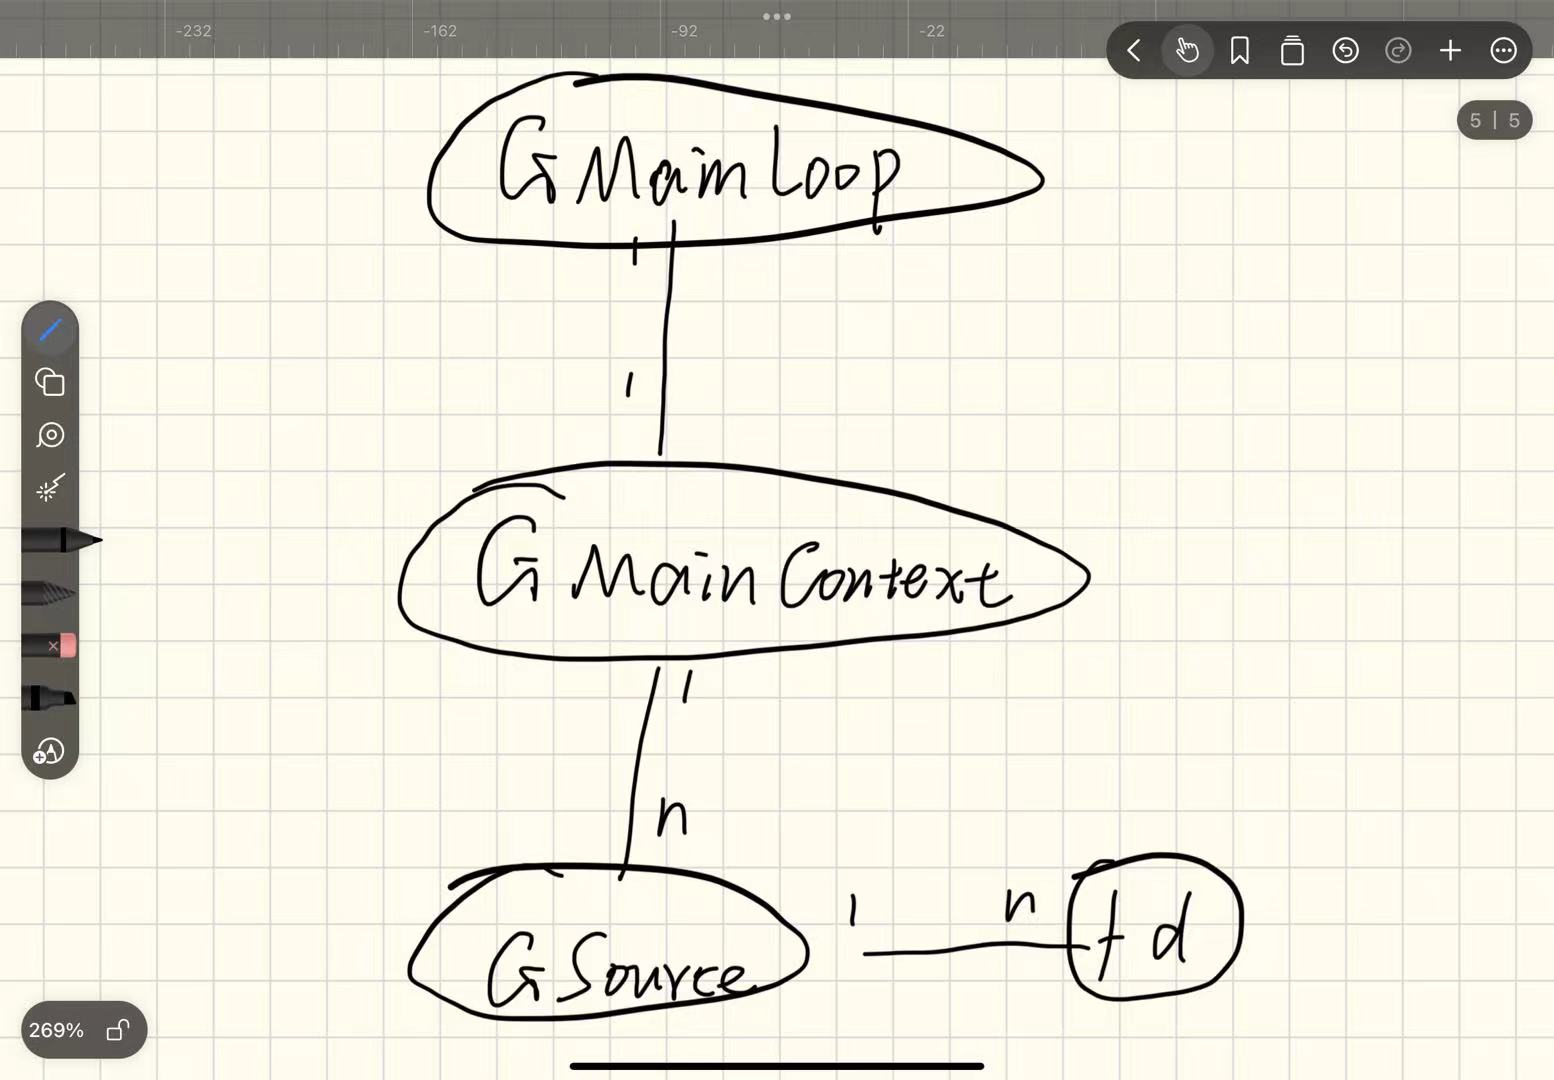 -232 -162 -92 -22
5 | 5
GMainLoop
1
1
GMainContext
1
n
1 n
fd
GSource
269%